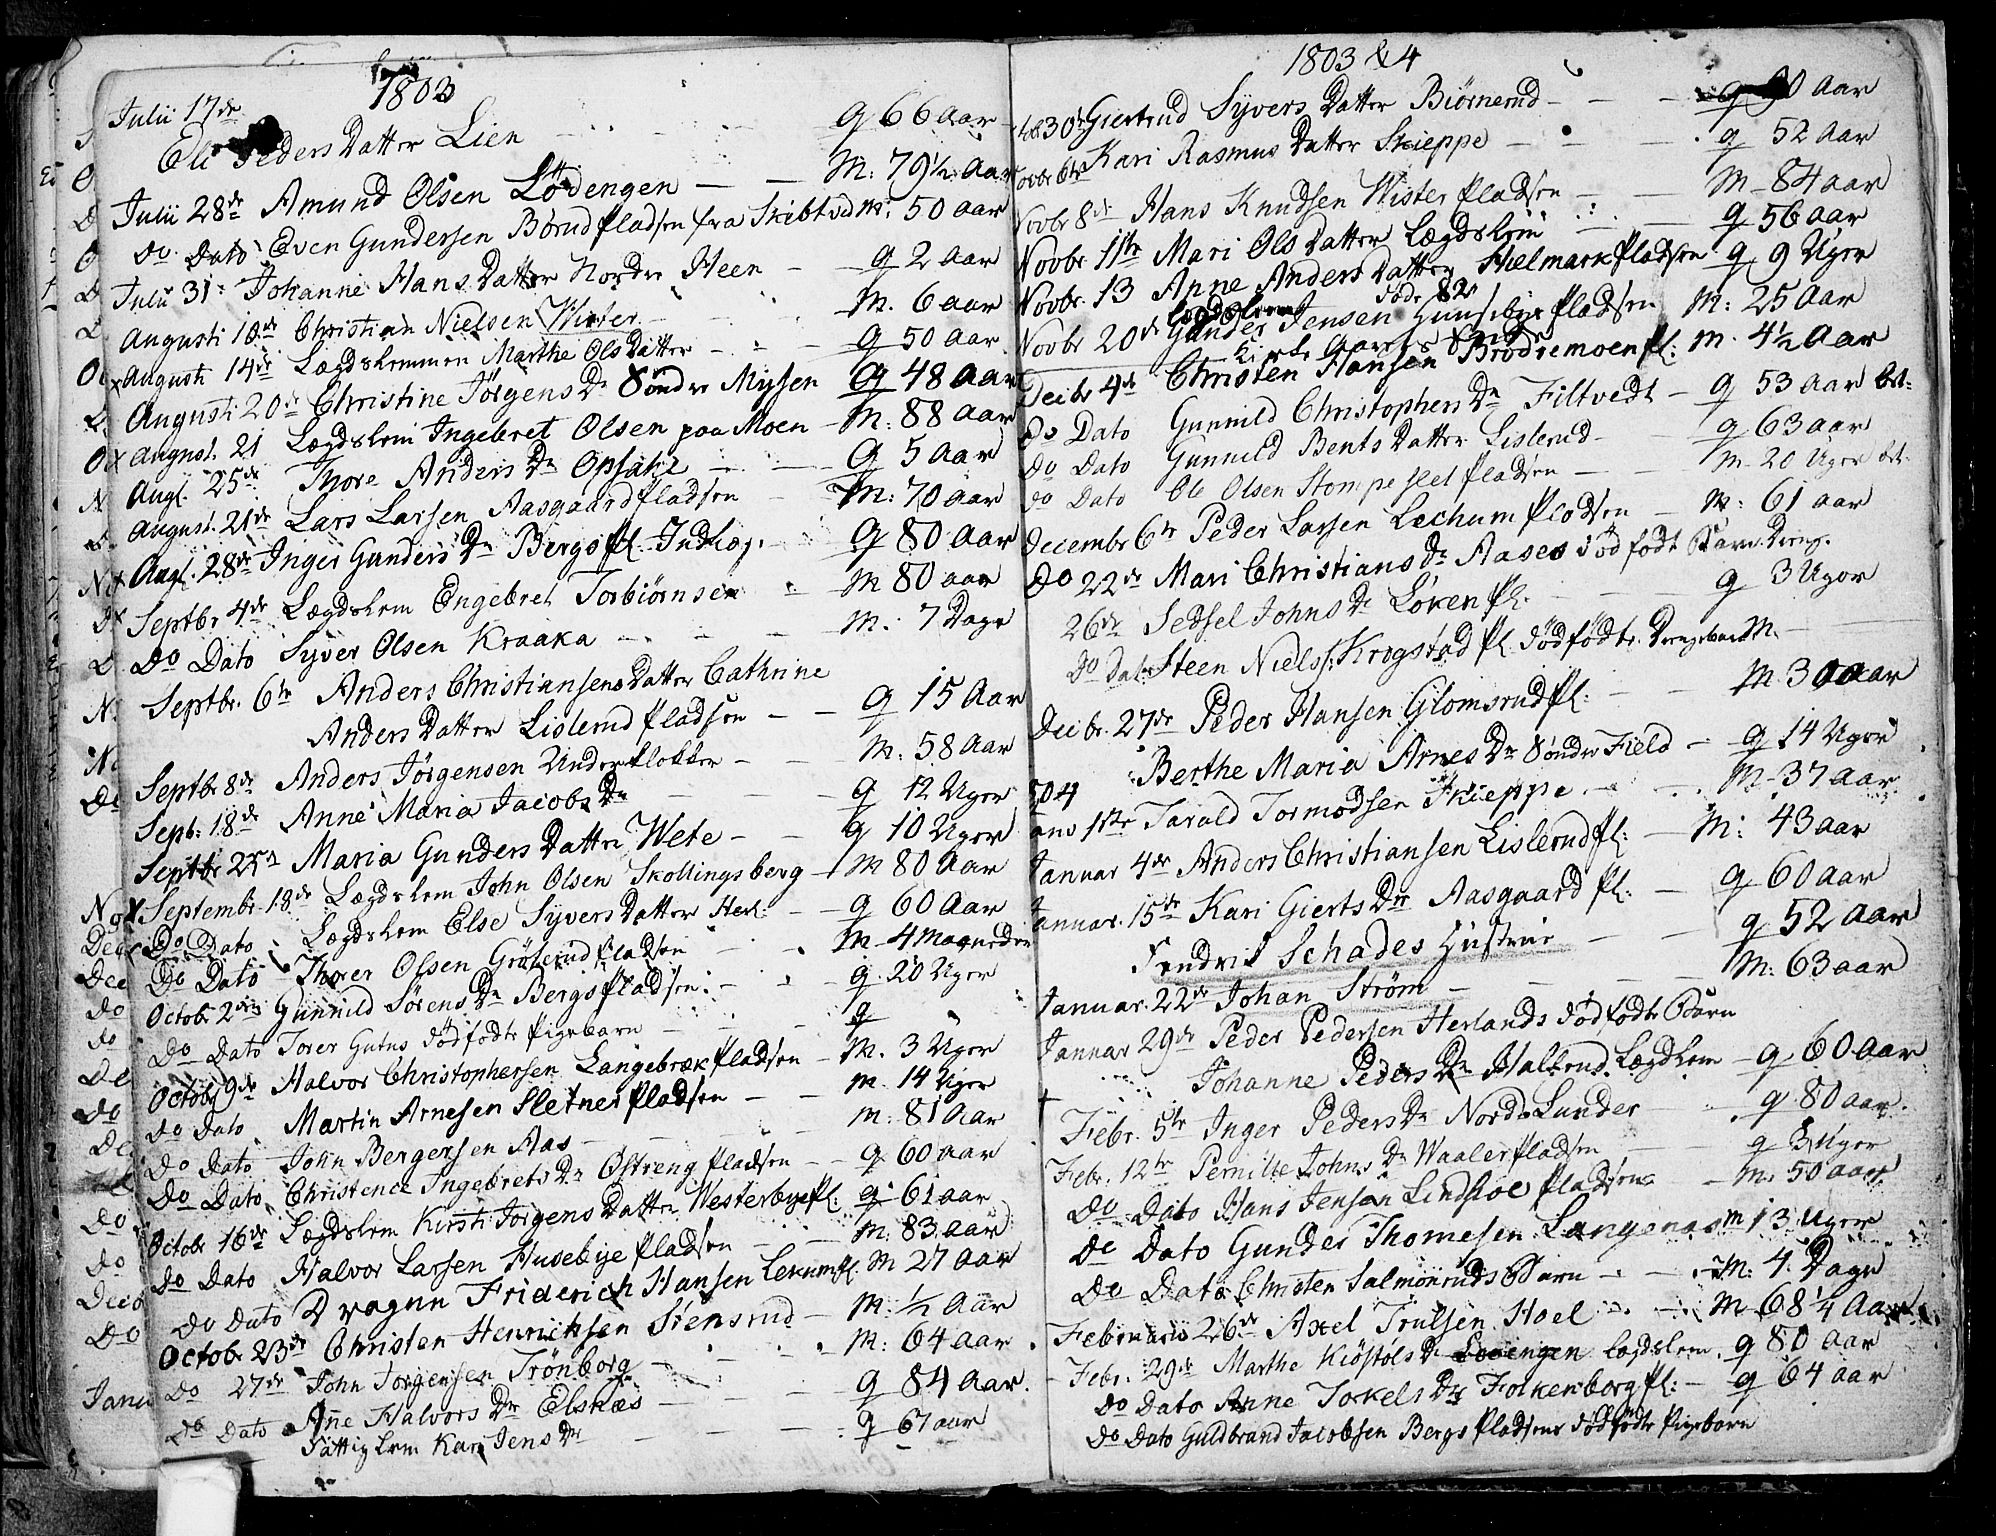 1803
Julii 17de
Eli Peders Datter Lien q 66 aar
Julii 28de Amund Olsen Lödengen M: 79½ Aar
Do Dato Even Gundersen Börud Pladsen fra Skibtved M: 50 aar
Julii 31: Johanne Hans Datter Nordre Heen q 2 aar
Augusti 10de Christian Nielsen Wister M. 6 aar
x Augusti 14de Lægdslemmen Marthe Ols Datter q 50 aar
Augusti 20de Christine Jörgens Dr Söndre Mysen q 48 aar
x August. 21 Lægdslem Ingebret Olsen paa Moen M: 88 aar
Augl. 25de Thore Anders Dr Opsahl q 5 Aar
August. 21de Lars Larsen Aasgaard Pladsen M: 70 aar
x Augl. 28de Inger Gunders Dr Bergs Pl. Indlæg: q 80 aar
Septbr 4de Lægdslem Engebret Torbiörnsen M 80 aar
Do Dato Syver Olsen Kraaka M: 7 Dage
Septbr. 6te Anders Christiansens Datter Cathrine
Anders Datter Lislerud Pladsen q 15 Aar
Septbr 8de Anders Jörgensen Underklokker M: 58 Aar
Septr. 18de Anne Maria Jacobs Dr q 12 Uger
Septbr 25de Maria Gunders Datter Wete q 10 Uger
x Septembr. 18de Lægdslem John Olsen Skollingsberg M 80 Aar
Do Dato Lægdslem Else Syvers Datter Herl: q 60 Aar
Do Dato Thorer Olsen Gröterud Pladsen M 4 Maaneder
Octobr 2den Gunnild Sörens Dr Bergs Pladsen q 20 Uger
Do Dato Torer Gutus dödfödte Pigebarn q
Octobr 9de Halvor Christophersen Langebræk Pladsen M. 3 Uger
Do Dato Martin Arnesen Sletner Pladsen M 14 Uger
Do Dato John Bergersen Aas M: 81 Aar
Do Dato Christence Ingebrets Dr Østreng Pladsen q 60 aar
Octobr 16de Lægdslem Kirsti Jörgens Datter Westerbye Pl: q 61 aar
Do Dato Halvor Larsen Husebye Pladsen M: 83 aar
Do Dato Dragun Friderich Hansen Lekum Pl. M 27 Aar
Octobr 23de Christen Henrichsen Stensrud M: ½ Aar
Do 27de John Jörgensen Trönborg M: 64 aar
Do Dato Ane Halvors Dr Elsnæs q 84 Aar.
Fattiglem Kari Jens Dr q 67 aar
1803 & 4
30de Giertrud Syvers Datter Biörnerud q 90 Aar
Novbr 6te Kari Rasmus Datter Skieppe q 52 Aar
Novbr 8de Hans Knudsen Wister Pladsen M 84 aar
Novbr 11te Mari Ols Datter Lægdslem q 56 aar
Novbr. 13 Anne Anders Datter Hielmark Pladsen q 9 Uger
Novbr 20de Gunder Jensen Huusebye Pladsen M: 25 Aar
Kirke Aarets Ende
Decbr 4de Christen Hansen Brödremoen Pl: M. 4½ Aar
Do Dato Gunnild Christophers Dr Filtvedt q 53 aar
Do Dato Gunnild Bents Datter Lislerud q 63 aar
do Dato Ole Olsen Stompeslet Pladsen M 20 Uger
Decembr 6te Peder Larsen Lechum Pladsen M: 61 aar
Do 22de Mari Christians Dr Aases dödfödt Barn. Dreng.
26de Sedsel Johns Dr Löken Pl. q 3 Uger
Do Dat: Steen Niels: Krogstad Pl. dödfödte Drengebarn M.
Decbr. 27de Peder Hansen Glomsrud Pl: M 30 aar
Berthe Maria Arnes Dr Söndre Field q 14 Uger
1804
Janv 1ste Tarald Tormodsen Skieppe M 37 aar
Januar 4de Anders Christiansen Lislerud Pl: M: 43 aar
Januar. 15de Kari Gierts Dr Aasgaard Pl: q 60 aar
Fendrik Schades Hustrue q 52 aar
Januar. 22de Johan Ström M: 63 aar
Januar 29de Peder Pedersen Herlands dödfödte Barn
Johanne Peders Dr Haltrud Lægdslem q 60 aar
Febr. 5te Inger Peders Dr Nord-Lunder q 80 aar.
Febr. 12te Pernille Johns Dr Waaler Pladsen q 3 Uger
Do Dato Hans Jensen Lindhoel Pladsen M: 50 aar
Do Dato Gunder Thomesen Langenæs M 13 Uger
Do Dato Christen Salmonruds Barn M: 4 Dage
Februarii 26de Axel Trulsen Hoel M 68¼ Aar
Febr. 29de Marthe Kiöstöls Dr Lægdslem. q 80 aar
Do Dato Anne Tockels Dr Folkenborg Pl: q 64 aar
Do Dato Guldbrand Jacobsen Bergs Pladsens dödfödte Pigebarn